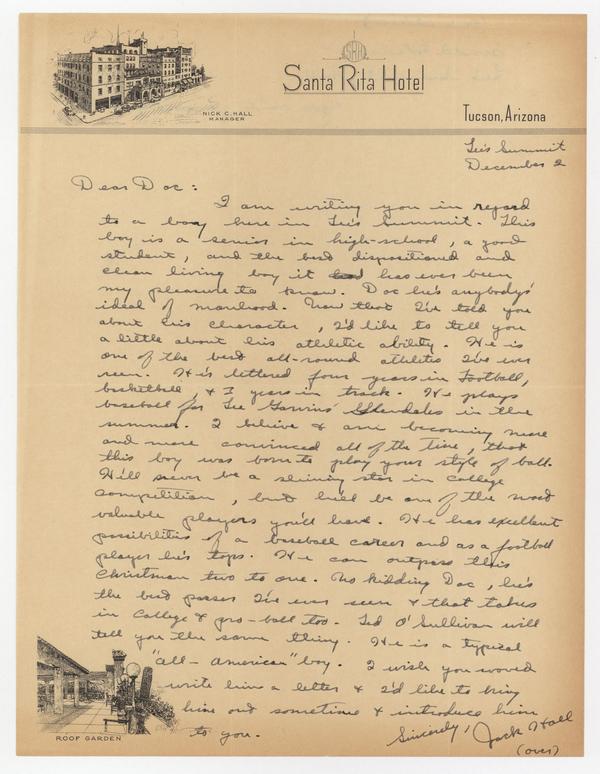 SRH
Santa Rita Hotel
NICK C. HALL
MANAGER
Tucson, Arizona
Lee's Summit
December 2
Dear Doc:
I am writing you in regard
to a boy here in Lee's Summit. This
boy is a senior in high-school, a good
student, and the best dispositioned and
clean living boy it has ever been
my pleasure to know. Doc he's anybodys'
ideal of manhood. Now that I've told you
about his character, I'd like to tell you
a little about his athletic ability. He is
one of the best all-round athletes I've ever
seen. He is lettered four years in football,
basketball & 3 years in track. He plays
baseball for Lee Glendales in the
summer. I believe & am becoming more
and more convinced all of the time, that
this boy was born to play your style of ball.
He'll never be a shining star in College
Competition, but he'll be one of the most
valuable players you'll have. He has excellent
possibilities of a baseball career and as a football
player he's tops. He can outpass this
Christman two to one. No kidding Doc, he's
the best passer I've ever seen & that takes
in College & pro-ball too. Ted O'Sullivan will
tell you the same thing. He is a typical
"all-American" boy. I wish you would
write him a letter & I'd like to bring
him out sometime & introduce him
to you.
Sincerely, Jack Hall
(over)
ROOF GARDEN